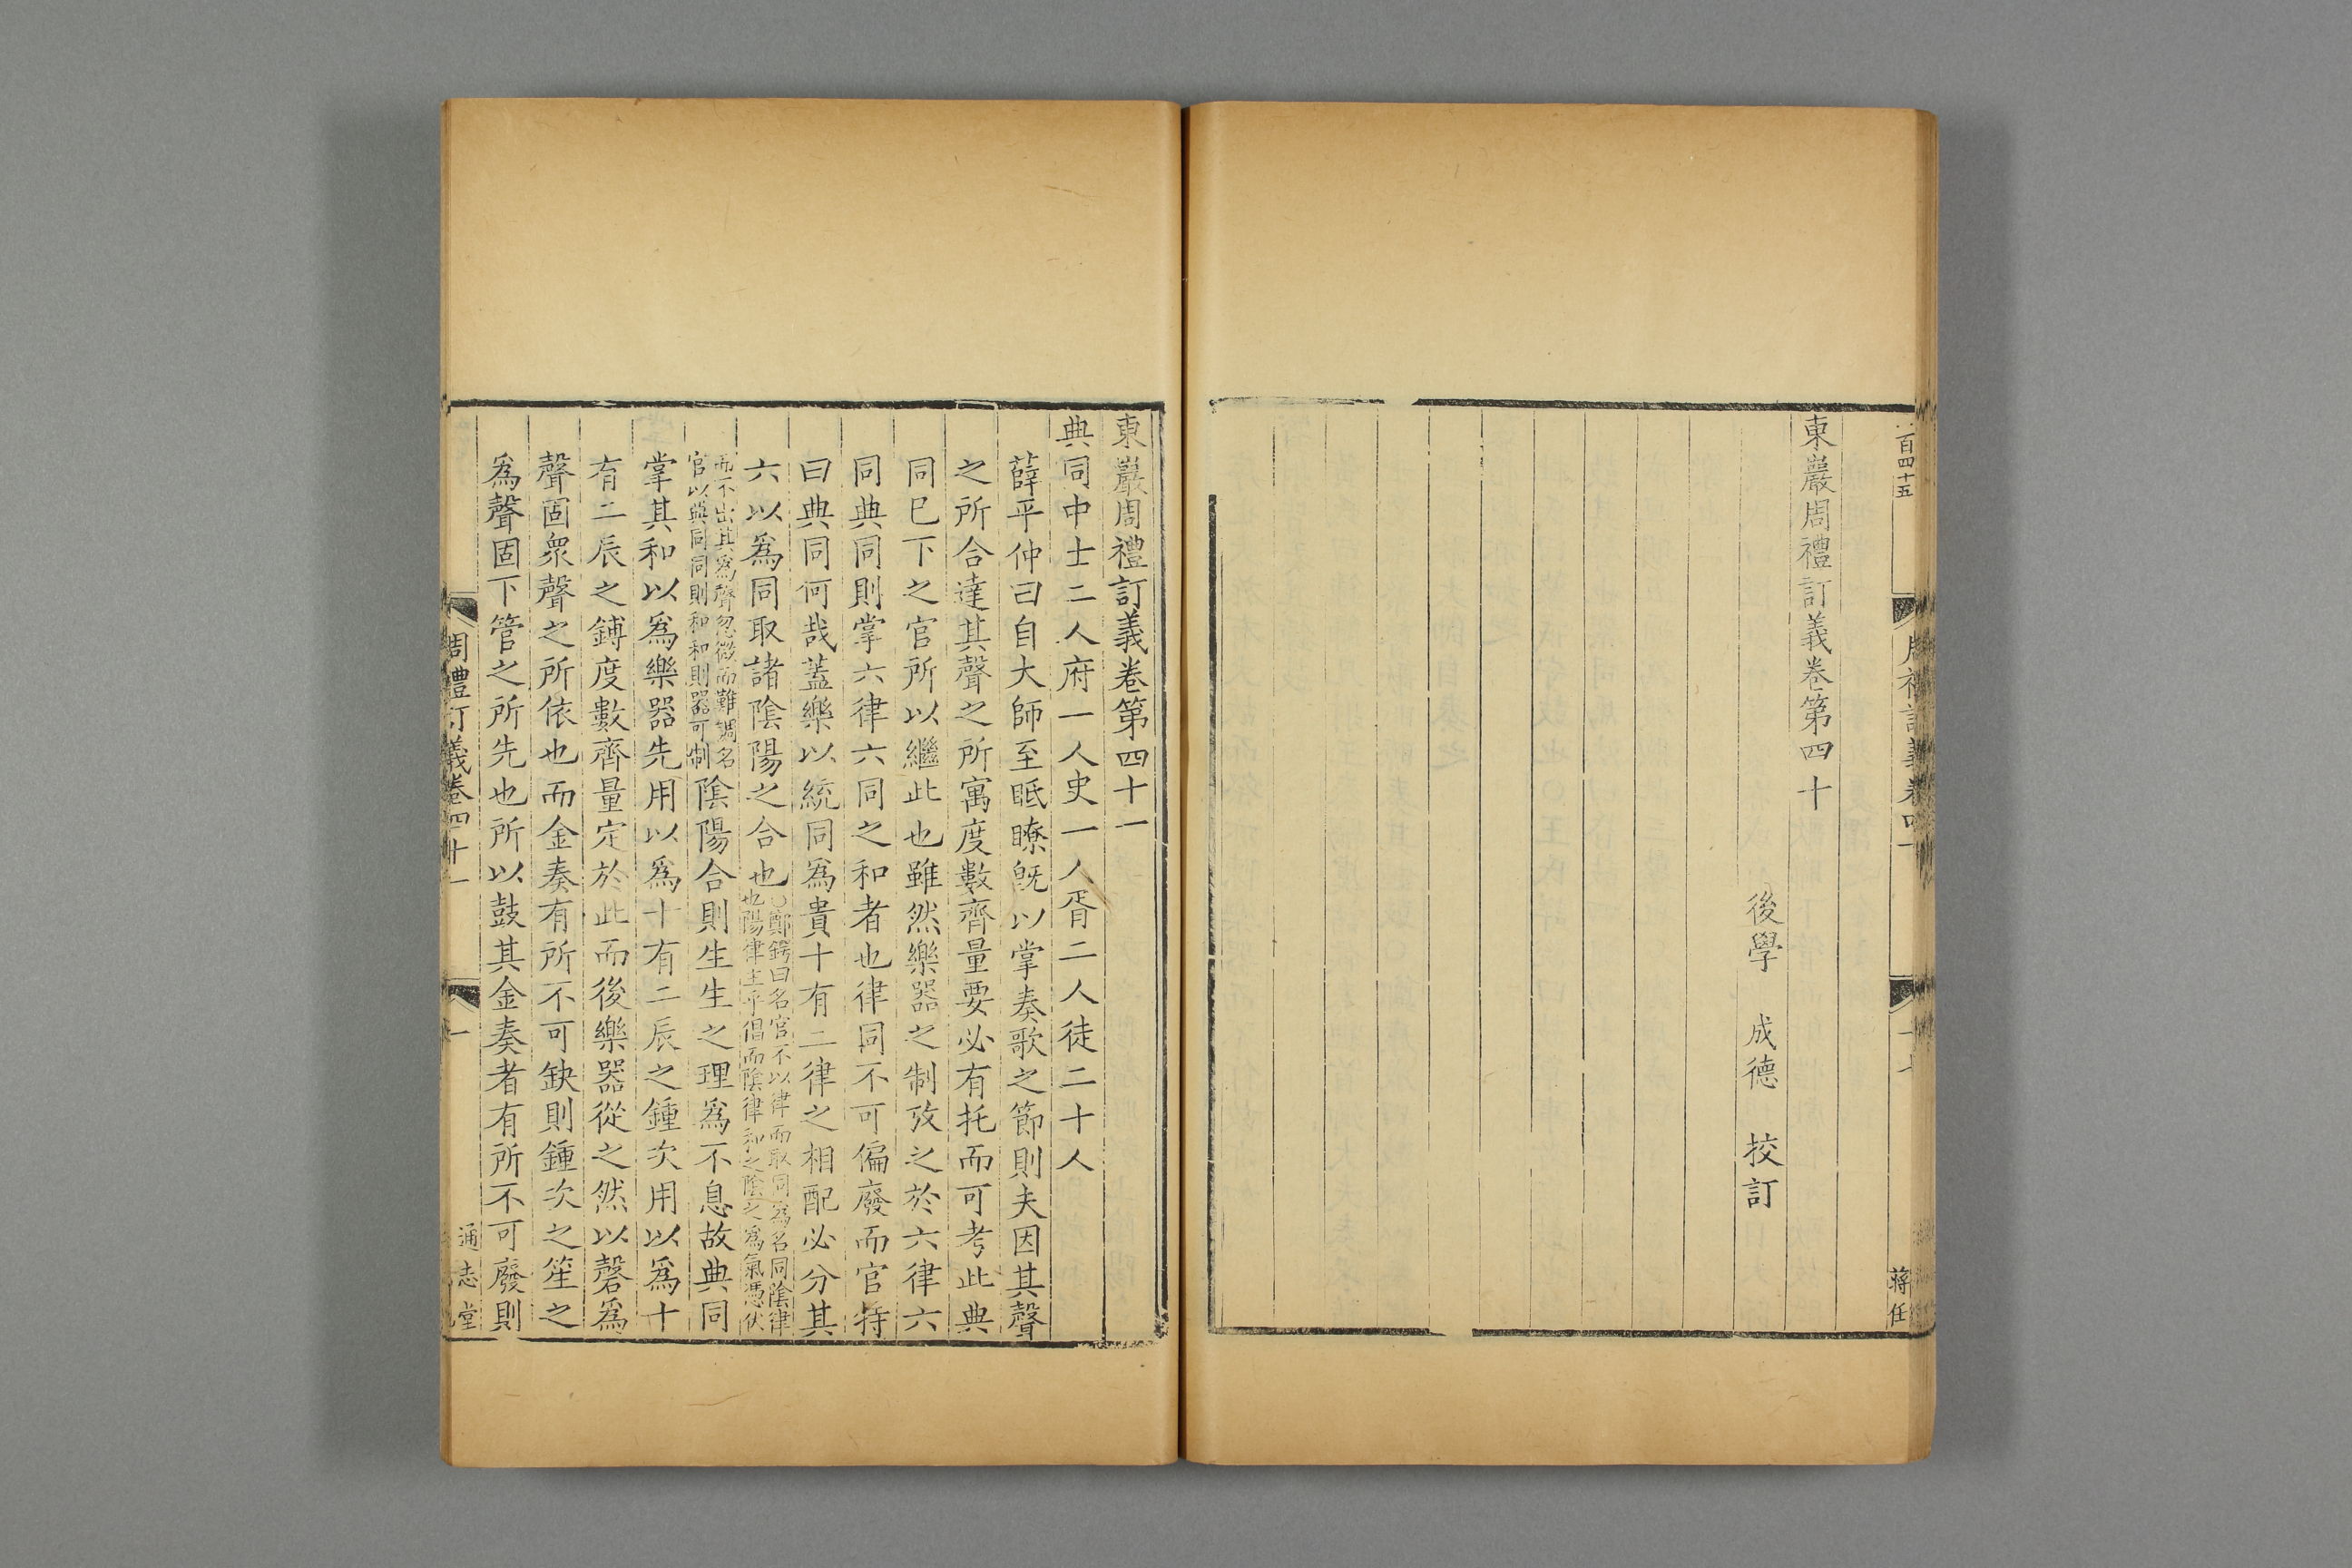 東巖周禮訂義卷第四十
後學 成德 挍訂
百四十五
十七
蔣任
東巖周禮訂義卷第四十一
典同中士二人府一人史一人胥二人徒二十人
薛平仲曰自大師至眂瞭旣以掌奏歌之節則夫因其聲
之所合達其聲之所寓度數齊量要必有托而可考此典
同已下之官所以繼此也雖然樂器之制攷之於六律六
同典同則掌六律六同之和者也律同不可偏廢而官特
曰典同何哉蓋樂以統同爲貴十有二律之相配必分其
六以爲同取諸陰陽之合也
○鄭鍔曰名官不以律而取同爲名同陰律
也陽律主乎倡而陰律和之陰之爲氣慿伏
而不出其爲聲忽微而難調名
官以典同同則和和則器可制
陰陽合則生生之理爲不息故典同
掌其和以爲樂器先用以爲十有二辰之鍾次用以爲十
有二辰之鎛度數齊量定於此而後樂器從之然以磬爲
聲固衆聲之所依也而金奏有所不可缺則鍾次之笙之
爲聲固下管之所先也所以鼓其金奏者有所不可廢則
周禮訂義卷四十一
一
通志堂